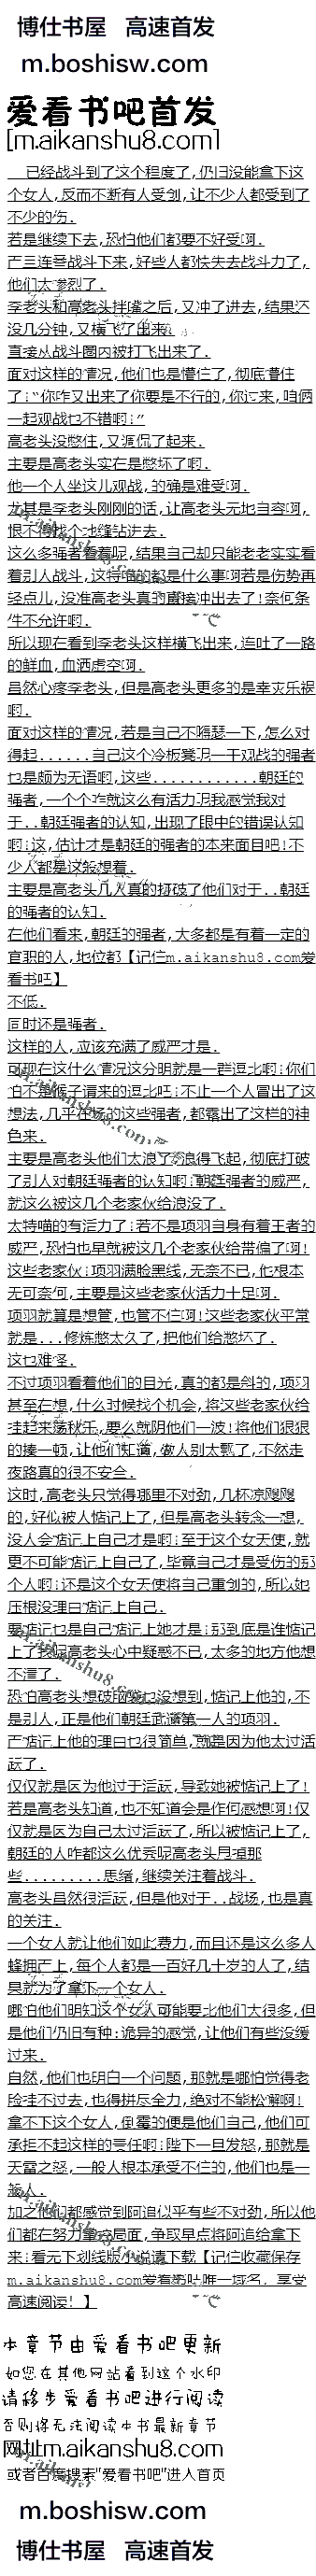 博仕书屋 高速首发
m.boshisw.com
爱看书吧首发
[m.aikanshu8.com]
已经战斗到了这个程度了,仍旧没能拿下这
个女人,反而不断有人受创,让不少人都受到了
不少的伤.
若是继续下去,恐怕他们都要不好受啊.
接连战斗下来,好些人都快失去战斗力了,
他们太惨烈了.
李老头和高老头拌嘴之后,又冲了进去,结果还
没几分钟,又横飞了出来.
直接从战斗圈内被打飞出来了.
面对这样的情况,他们也是懵住了,彻底懵住
了:“你咋又出来了你要是不行的,你过来,咱俩
一起观战也不错啊:”
高老头没憋住,又调侃了起来.
主要是高老头实在是憋坏了啊.
他一个人坐这儿观战,的确是难受啊.
尤其是李老头刚刚的话,让高老头无地自容啊,
恨不得找个地缝钻进去.
这么多强者看着呢,结果自己却只能老老实实看
着别人战斗,这特喵的都是什么事啊若是伤势再
轻点儿,没准高老头真的直接冲出去了!奈何条
件不允许啊.
所以现在看到李老头这样横飞出来,连吐了一路
的鲜血,血洒虚空啊.
虽然心疼李老头,但是高老头更多的是幸灾乐祸
啊.
面对这样的情况,若是自己不嘚瑟一下,怎么对
得起......自己这个冷板凳呢一干观战的强者
也是颇为无语啊,这些............朝廷的
强者,一个个咋就这么有活力呢我感觉我对
于..朝廷强者的认知,出现了眼中的错误认知
啊:这,估计才是朝廷的强者的本来面目吧!不
少人都是这般想着.
主要是高老头几人真的打破了他们对于..朝廷
的强者的认知.
在他们看来,朝廷的强者,大多都是有着一定的
官职的人,地位都【记住m.aikanshu8.com爱
看书吧】
不低.
同时还是强者.
这样的人,应该充满了威严才是.
可现在这什么情况这分明就是一群逗比啊:你们
怕不是猴子请来的逗比吧:不止一个人冒出了这
想法,几乎在场的这些强者,都露出了这样的神
色来.
主要是高老头他们太浪了:浪得飞起,彻底打破
了别人对朝廷强者的认知啊:朝廷强者的威严,
就这么被这几个老家伙给浪没了.
太特喵的有活力了:若不是项羽自身有着王者的
威严,恐怕也早就被这几个老家伙给带偏了啊!
这些老家伙:项羽满脸黑线,无奈不已,他根本
无可奈何,主要是这些老家伙活力十足啊.
项羽就算是想管,也管不住啊!这些老家伙平常
就是...修炼憋太久了,把他们给憋坏了.
这也难怪.
不过项羽看着他们的目光,真的都是斜的,项羽
甚至在想,什么时候找个机会,将这些老家伙给
挂起来荡秋千,要么就阴他们一波!将他们狠狠
的揍一顿,让他们知道,做人别太飘了,不然走
夜路真的很不安全.
这时,高老头只觉得哪里不对劲,几杯凉飕飕
的,好似被人惦记上了,但是高老头转念一想,
没人会惦记上自己才是啊:至于这个女天使,就
更不可能惦记上自己了,毕竟自己才是受伤的那
个人啊:还是这个女天使将自己重创的,所以她
压根没理由惦记上自己.
要惦记也是自己惦记上她才是:那到底是谁惦记
上了我呢高老头心中疑惑不已,太多的地方他想
不清了.
恐怕高老头想破脑袋也没想到,惦记上他的,不
是别人,正是他们朝廷武道第一人的项羽.
而惦记上他的理由也很简单,就是因为他太过活
跃了.
仅仅就是因为他过于活跃,导致她被惦记上了!
若是高老头知道,也不知道会是作何感想啊!仅
仅就是因为自己太过活跃了,所以被惦记上了,
朝廷的人咋都这么优秀呢高老头甩掉那
些.........思绪,继续关注着战斗.
高老头虽然很活跃,但是他对于..战场,也是真
的关注.
一个女人就让他们如此费力,而且还是这么多人
蜂拥而上,每个人都是一百好几十岁的人了,结
果就为了拿下一个女人.
哪怕他们明知这个女人可能要比他们大很多,但
是他们仍旧有种:诡异的感觉,让他们有些没缓
过来.
自然,他们也明白一个问题,那就是哪怕觉得老
脸挂不过去,也得拼尽全力,绝对不能松懈啊!
拿不下这个女人,倒霉的便是他们自己,他们可
承担不起这样的责任啊:陛下一旦发怒,那就是
天雷之怒,一般人根本承受不住的,他们也是一
般人.
加之他们都感觉到阿追似乎有些不对劲,所以他
们都在努力掌控局面,争取早点将阿追给拿下
来:看无下划线版小说请下载【记住收藏保存
m.aikanshu8.com爱看书吧唯一域名，享受
高速阅读！】
本章节由爱看书吧更新
如您在其他网站看到这个水印
请移步爱看书吧进行阅读
否则将无法阅读本书最新章节
网址m.aikanshu8.com
或者百度搜索“爱看书吧”进入首页
m.boshisw.com
博仕书屋 高速首发